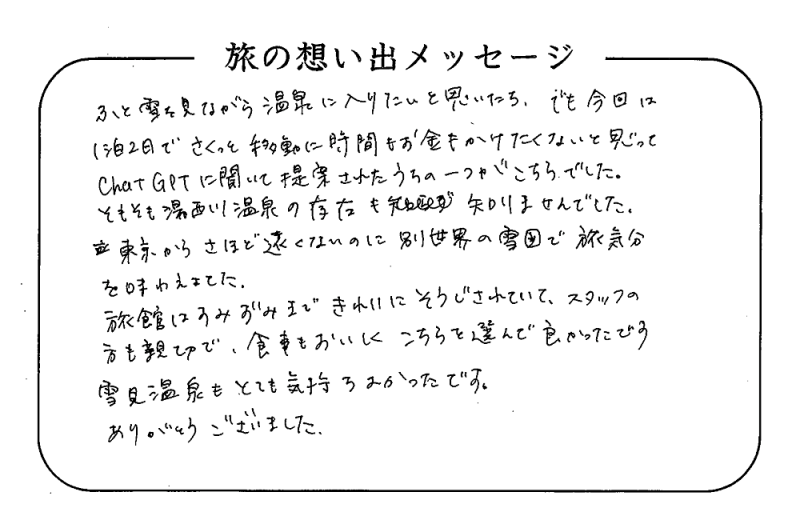 旅の想い出メッセージ
ふと雪を見ながら温泉に入りたいと思いたち、でも今回は
1泊2日でさくっと移動に時間もお金もかけたくないと思って
ChatGPTに聞いて提案されたうちの一つがこちらでした。
そもそも湯西川温泉の存在も知りませんでした。
東京からさほど遠くないのに別世界の雪国で旅気分
を味わえました。
旅館はすみずみまできれいにそうじされていて、スタッフの
方も親切で、食事もおいしくこちらを選んで良かったです
雪見温泉もとても気持ちよかったです。
ありがとうございました。